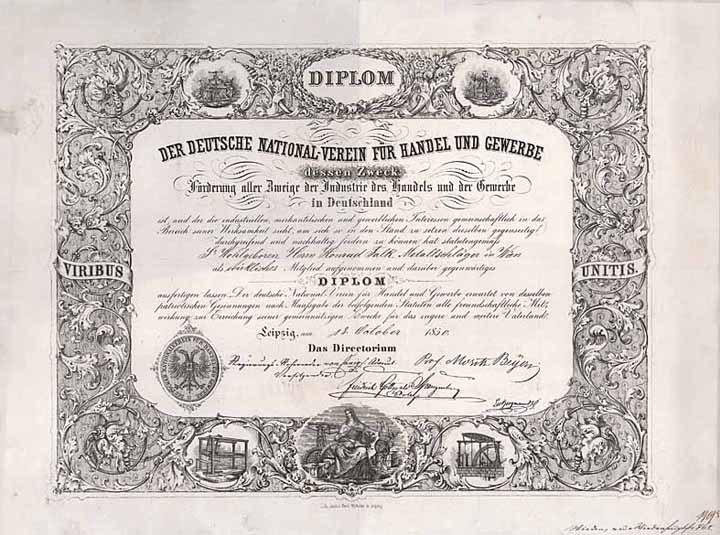 DIPLOM
DER DEUTSCHE NATIONAL-VEREIN FÜR HANDEL UND GEWERBE
dessen Zweck
Förderung aller Zweige der Industrie des Handels und der Gewerbe
in Deutschland
ist, und der die industriellen, merkantilischen und gewerblichen Interessen gemeinschaftlich in das
Bereich seiner Wirksamkeit zieht, um sich so in den Stand zu setzen dieselben gegenseitig,
durchgreifend und nachhaltig fördern zu können hat statutengemäss
Sr. Wohlgeboren Herrn Konrad Falk, Metallschläger in Wien
als wirkliches Mitglied aufgenommen und darüber gegenwärtiges
DIPLOM
ausfertigen lassen. Der deutsche National-Verein für Handel und Gewerbe erwartet von desselben
patriotischen Gesinnungen nach Maassgabe der beifolgenden Statuten alle freundschaftliche Mit-
wirkung zur Erreichung seiner gemeinnützigen Zwecke für das engere und weitere Vaterland.
VIRIBUS
UNITIS.
Leipzig, am 18. October 1850.
Das Directorium
Prof. Moritz Beyer
Vorsitzender
Friedrich Gottwald